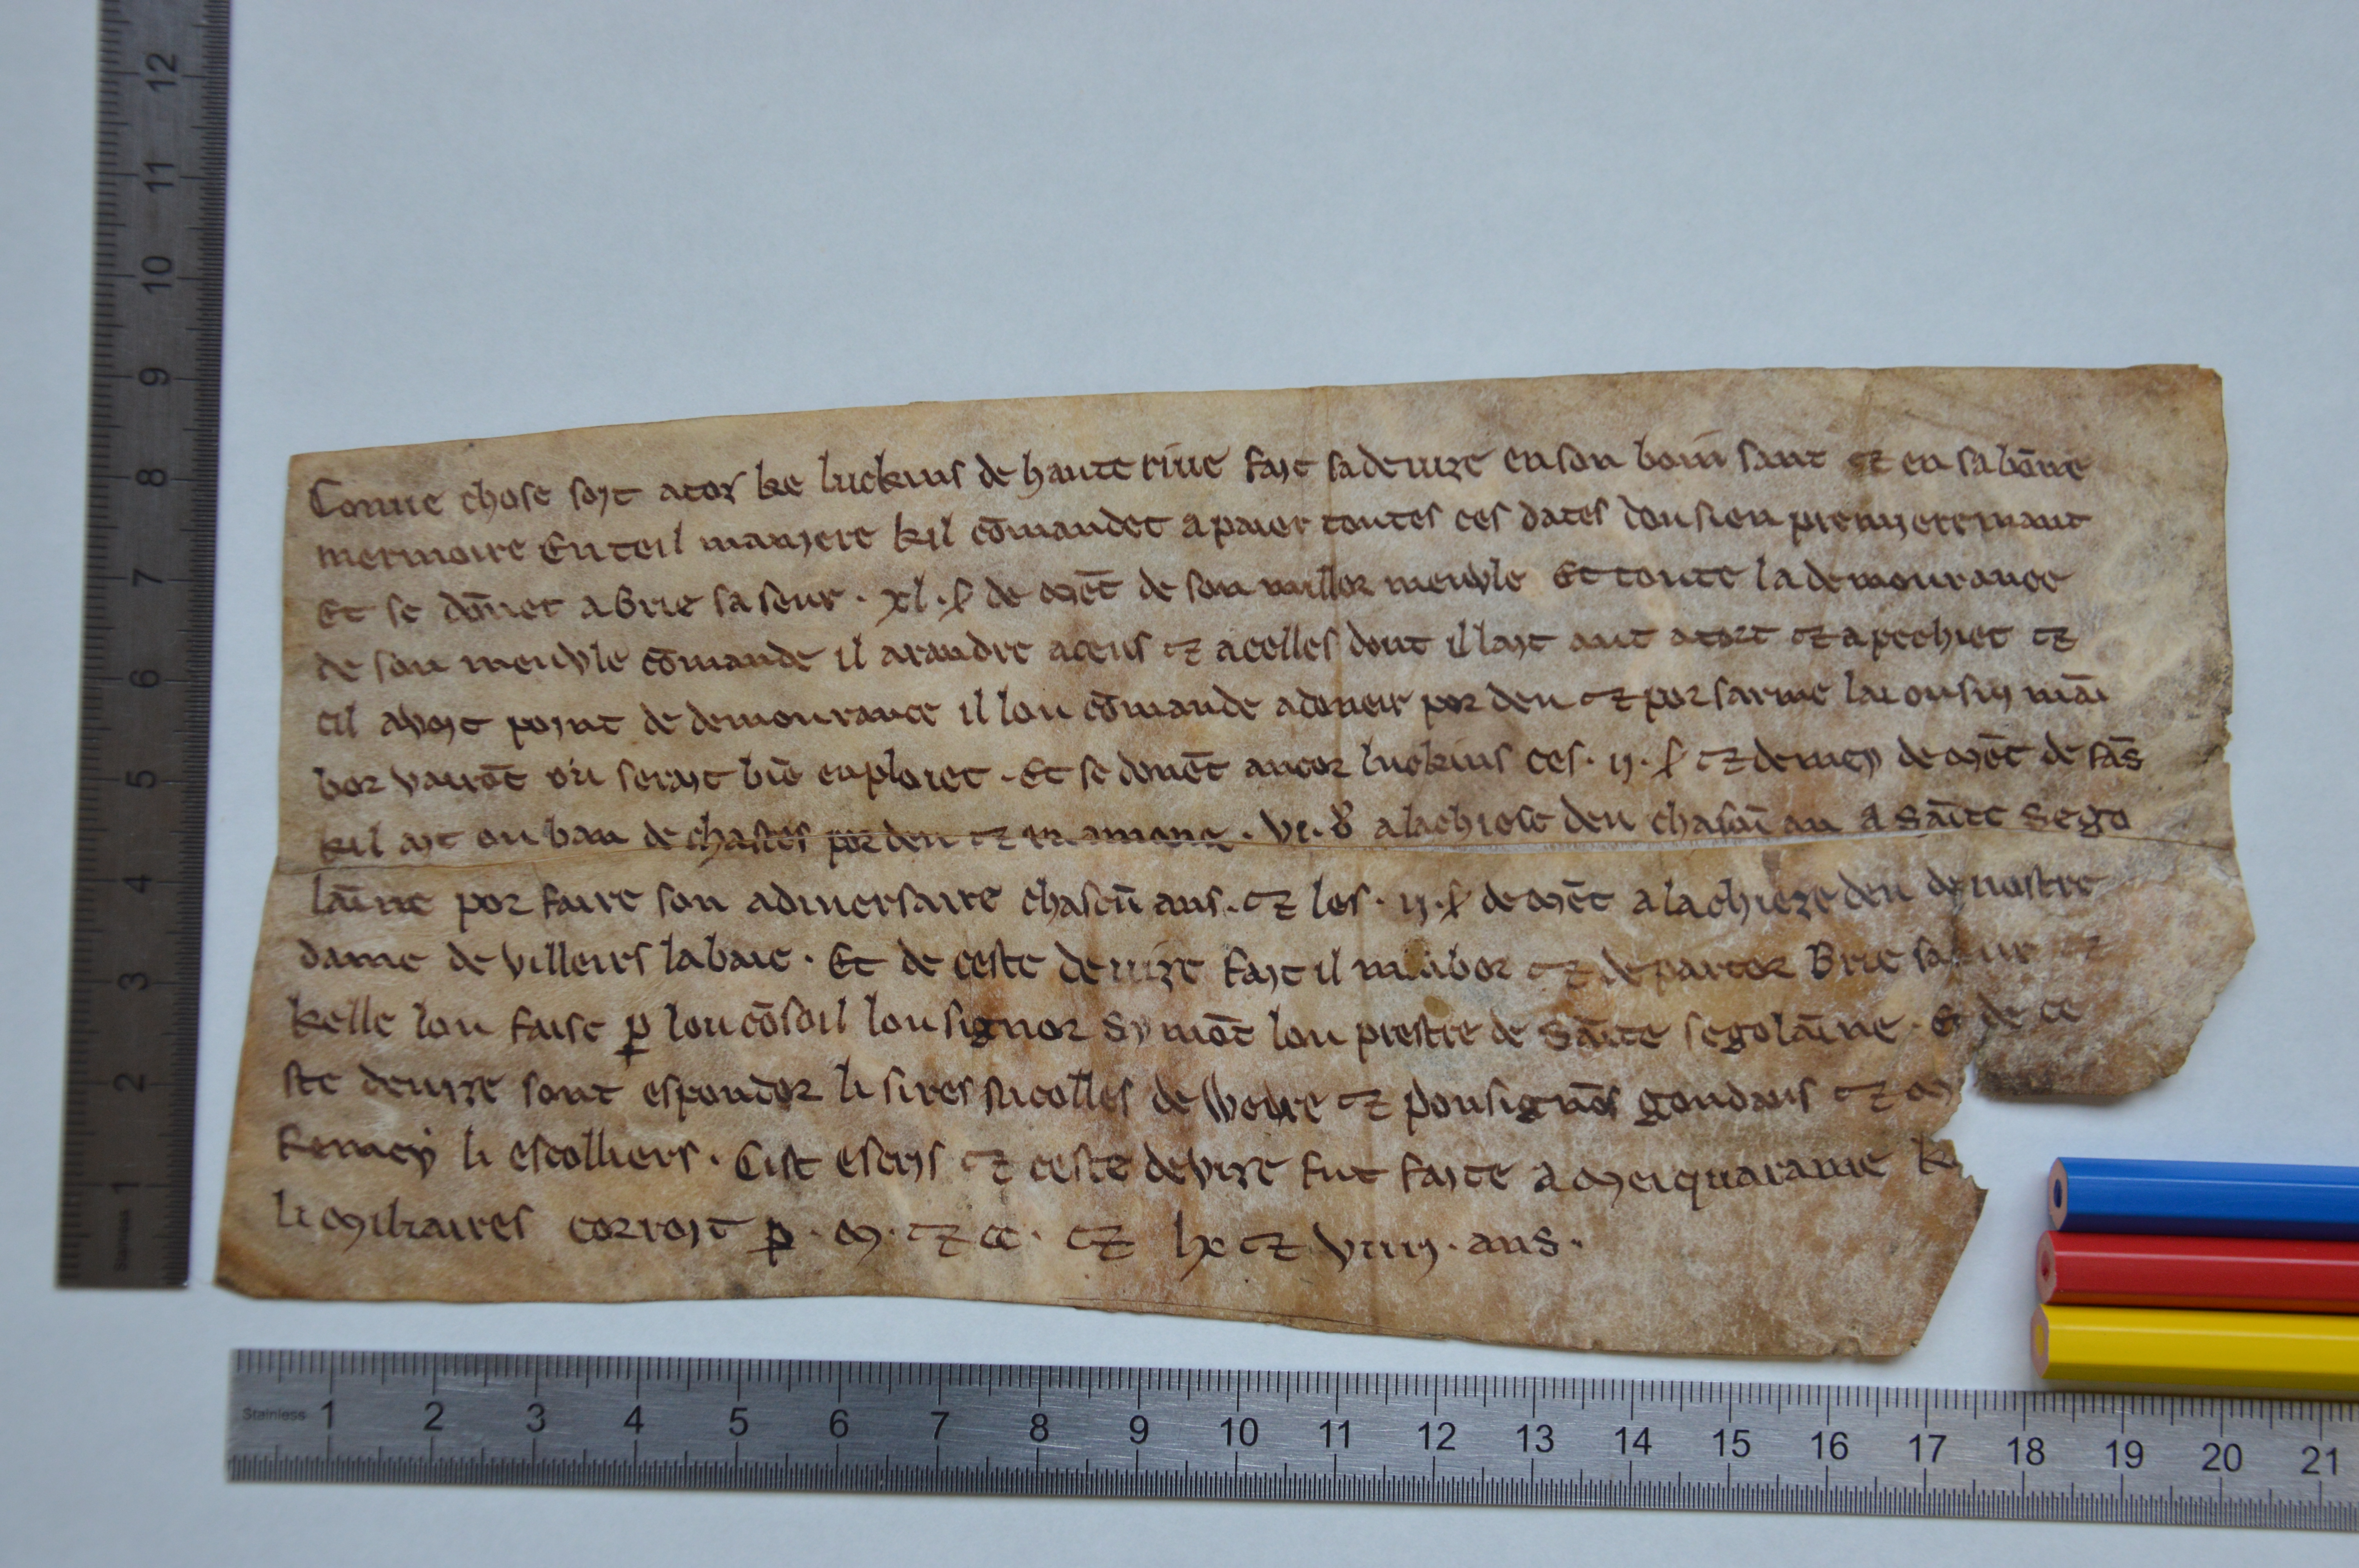 Conue chose soit a toz ke luckins de haute riue fayt sa deuize en son boin sant et en sa bōne
mermoire En teil manyere kil cōmandet a paier toutes ces dates dou sien premyeremant
Et se dōnet a Brie sa seur · xl · ł de mēt de son millor meuvle Et toute la demourance
de son meuvle cōmande il a randre a ceus et a celles dont il layt aut a tort et a pechiet et
cil avoyt poynt de demourance il lou cōmande a doneir por deu et por sarme lai ou sui māi
bor vairōt ou serayt biē enploiet · Et se donēt ancor luckins ces · ij · ł et demey de mēt de fās
kil ayt ou ban de chastes por deu et en amone · vi · đ a lachiese deu chascū an a sāīte sego
lāīne por faire son adiuersaire chascū ans · et les · ij · ł de mēt a lachieze deu de nostre
dame de villeirs labaie · Et de ceste deuize fayt il mābor et departor Brie sa seur et
kelle lou faise p lou cōsoil lou signor Symōt lou prestre de sāīte segolāīne · Et de ce
ste deuize sont espondor li sires nicolles de Weure et ponsignōs goudaus et m
Remey li escolliers · Cist escrys et ceste devize fut fayte a meiquarame k
li miliaires corroyt p · m · et cc · et lx et viiij · ans ·
Stainless 1 2 3 4 5 6 7 8 9 10 11 12 13 14 15 16 17 18 19 20 21
12
11
10
9
8
7
6
5
4
3
2
1
Stainless